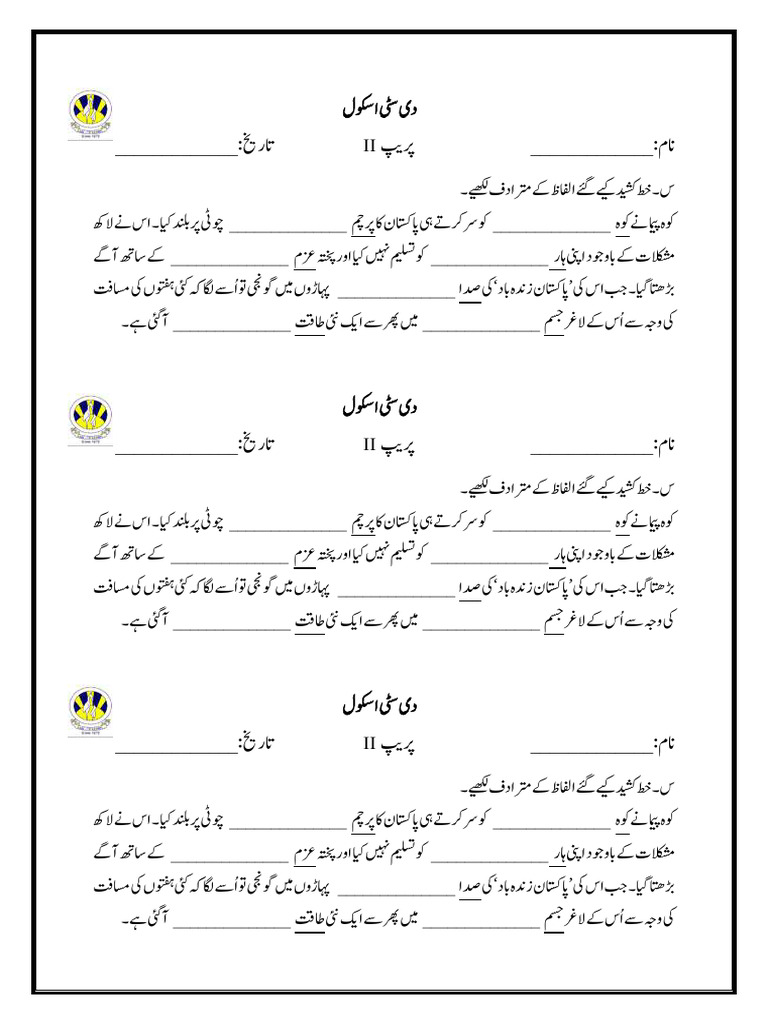 دی سٹی اسکول
نام: ______________ پریپ II تاریخ: ______________
س۔ خط کشید کیے گئے الفاظ کے مترادف لکھیے۔
کوہ پیما نے کوہ ______________ کو سر کرتے ہی پاکستان کا پرچم ______________ چوٹی پر بلند کیا۔ اس نے لاکھ
مشکلات کے باوجود اپنی ہار ______________ کو تسلیم نہیں کیا اور پختہ عزم ______________ کے ساتھ آگے
بڑھتا گیا۔ جب اس کی ’پاکستان زندہ باد‘ کی صدا ______________ پہاڑوں میں گونجی تو اُسے لگا کہ کئی ہفتوں کی مسافت
کی وجہ سے اُس کے لاغر جسم ______________ میں پھر سے ایک نئی طاقت ______________ آگئی ہے۔
دی سٹی اسکول
نام: ______________ پریپ II تاریخ: ______________
س۔ خط کشید کیے گئے الفاظ کے مترادف لکھیے۔
کوہ پیما نے کوہ ______________ کو سر کرتے ہی پاکستان کا پرچم ______________ چوٹی پر بلند کیا۔ اس نے لاکھ
مشکلات کے باوجود اپنی ہار ______________ کو تسلیم نہیں کیا اور پختہ عزم ______________ کے ساتھ آگے
بڑھتا گیا۔ جب اس کی ’پاکستان زندہ باد‘ کی صدا ______________ پہاڑوں میں گونجی تو اُسے لگا کہ کئی ہفتوں کی مسافت
کی وجہ سے اُس کے لاغر جسم ______________ میں پھر سے ایک نئی طاقت ______________ آگئی ہے۔
دی سٹی اسکول
نام: ______________ پریپ II تاریخ: ______________
س۔ خط کشید کیے گئے الفاظ کے مترادف لکھیے۔
کوہ پیما نے کوہ ______________ کو سر کرتے ہی پاکستان کا پرچم ______________ چوٹی پر بلند کیا۔ اس نے لاکھ
مشکلات کے باوجود اپنی ہار ______________ کو تسلیم نہیں کیا اور پختہ عزم ______________ کے ساتھ آگے
بڑھتا گیا۔ جب اس کی ’پاکستان زندہ باد‘ کی صدا ______________ پہاڑوں میں گونجی تو اُسے لگا کہ کئی ہفتوں کی مسافت
کی وجہ سے اُس کے لاغر جسم ______________ میں پھر سے ایک نئی طاقت ______________ آگئی ہے۔